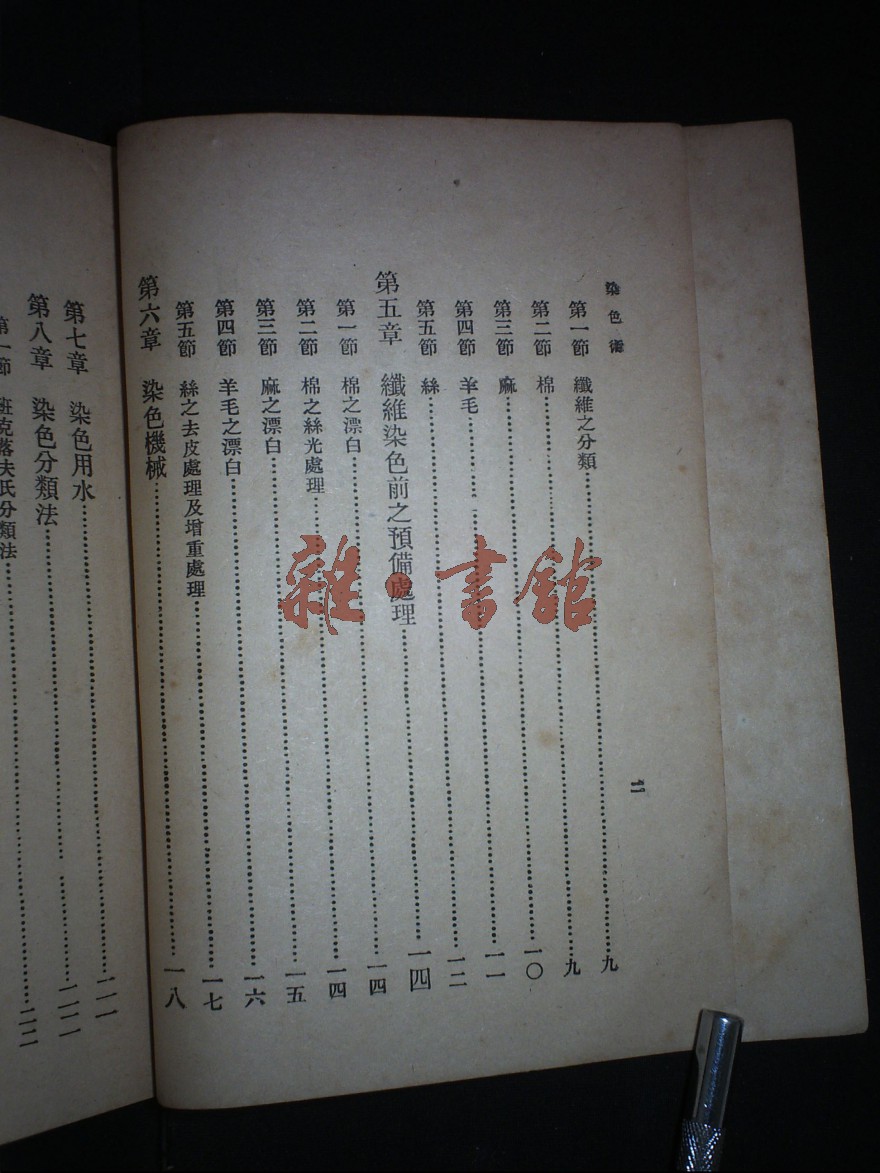 染色術
二
第一節 纖維之分類……九
第二節 棉……九
第三節 麻……一〇
第四節 羊毛……一一
第五節 絲……一二
第五章 纖維染色前之預備處理……一四
第一節 棉之漂白……一四
第二節 棉之絲光處理……一四
第三節 麻之漂白……一五
第四節 羊毛之漂白……一六
第五節 絲之去皮處理及增重處理……一七
第六章 染色機械……一八
第七章 染色用水……二一
第八章 染色分類法……二二
第一節 班克落夫氏分類法……二二
雜·書館